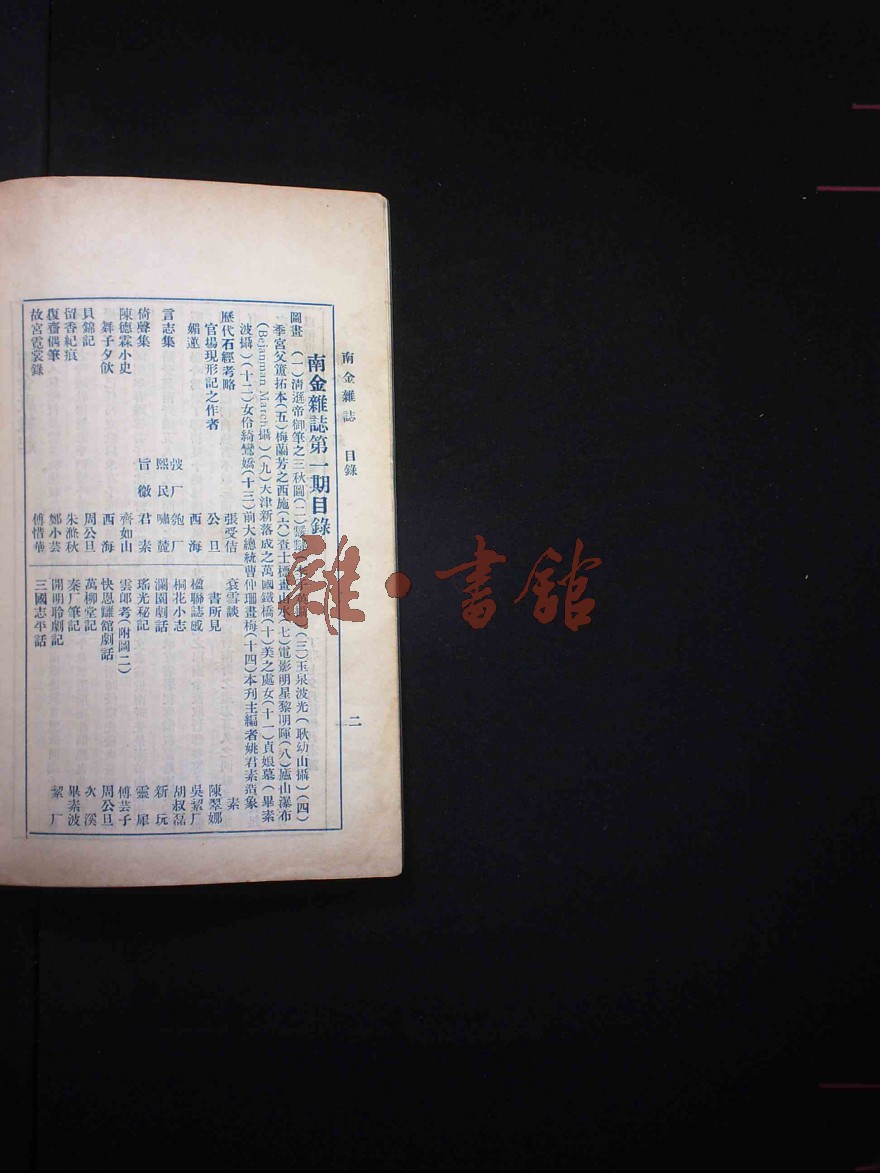 南金雜誌 目錄 二
南金雜誌第一期目錄
圖畫 (一)清遜帝御筆之三秋圖(二) (三)玉泉波光(耿幼山攝)(四)
季宮父簠拓本(五)梅蘭芳之西施(六)查士標畫山水(七)電影明星黎明暉(八)廬山瀑布
(Bejanman March攝)(九)大津新落成之萬國鐵橋(十)美之處女(十一)貞娘墓(畢素
波攝)(十二)女伶綺鸞嬌(十三)前大總統曹仲珊畫梅(十四)本刊主編者姚君素造象
歷代石經考略 張受佶
官場現形記之作者 公旦
媚 西海
言志集 弢厂 匏厂 熙民 嘯麓
倚聲集 旨微 君素
陳德霖小史 齊如山
舞子夕飲 西海
貝錦記 周公旦
留香紀痕 朱滌秋
復齋偶筆 鄭小芸
故宮霓裳錄 傅惜華
袞雪談 素
書所見 陳翠娜
楹聯誌感 吳絜厂
桐花小志 胡叔磊
瀾園劇話 新玩
瑤光秘記 靈犀
雲郎考(附圖二) 傅芸子
快恩讎館劇話 周公旦
萬柳堂記 次溪
秦厂筆記 畢素波
開明聆劇記 絜厂
三國志平話
雜·書館